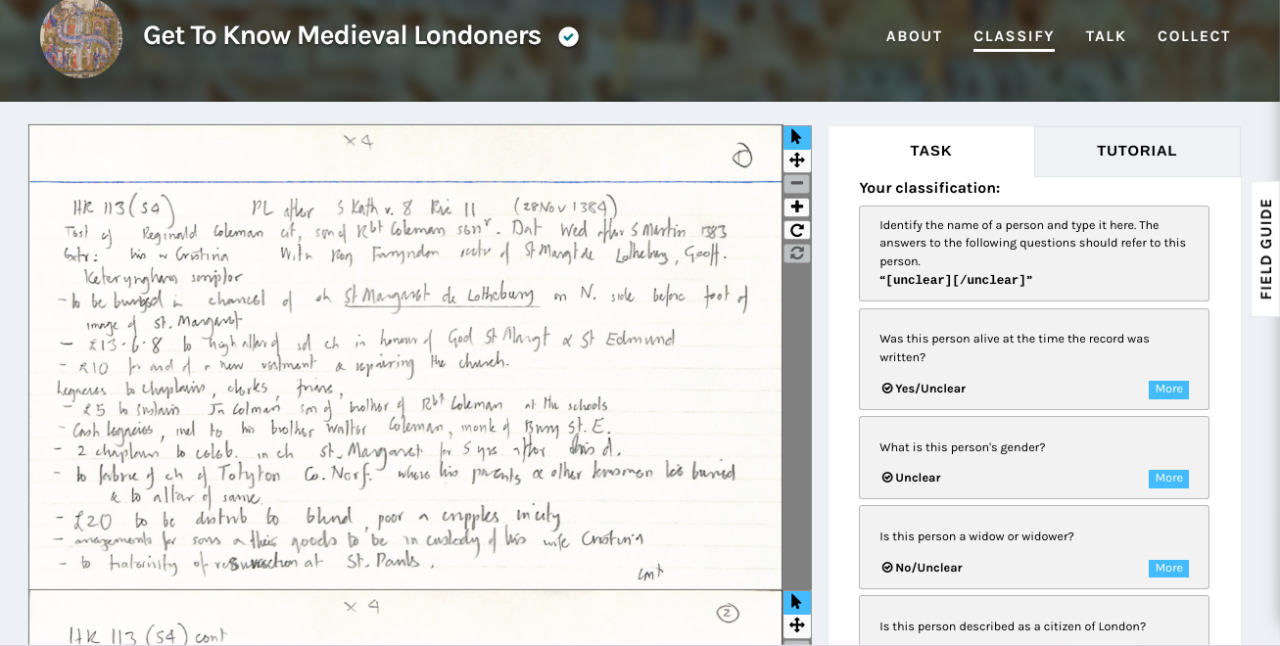 Get To Know Medieval Londoners
ABOUT CLASSIFY TALK COLLECT
x 4
HR 113 (54) PL after S Kath v. 8 Ric II (28 Nov 1384)
Test of Reginald Coleman cit, son of Rbt Coleman . Dat Wed after S Martin 1383
Extr: his w Cristina With Reg Faryndon rector of St Margt de Lothebury, Geoff.
Keteryngham scriptor
- to be buried in chancel of ch St Margaret de Lothebury on N. side before foot of
image of St. Margaret
- £13·6·8 to high altar of sd ch in honour of God St Margt & St Edmund
- £10 for a new vestment & repairing the church.
Legacies to chaplains, clerks, friars,
- £5 to sustain Jn Colman son of brother of Rbt Coleman at the schools
- Cash legacies, incl to his brother Walter Coleman, monk of Bury St. E.
- 2 chaplains to celeb. in ch St. Margaret for 5 yrs after his d.
- to fabric of ch of Totyton Co. Norf. where his parents & other kinsmen lie buried
& to altar of same.
- £20 to be distrib to blind, poor & cripples in city
- arrangements for sons & their goods to be in custody of his wife Cristina
- to fraternity of resurrection at St. Pauls.
cont
x 4
2
HR 113 (54) cont
TASK
TUTORIAL
Your classification:
Identify the name of a person and type it here. The
answers to the following questions should refer to this
person.
“[unclear][/unclear]”
Was this person alive at the time the record was
written?
Yes/Unclear
More
What is this person's gender?
Unclear
More
Is this person a widow or widower?
No/Unclear
More
Is this person described as a citizen of London?
FIELD GUIDE